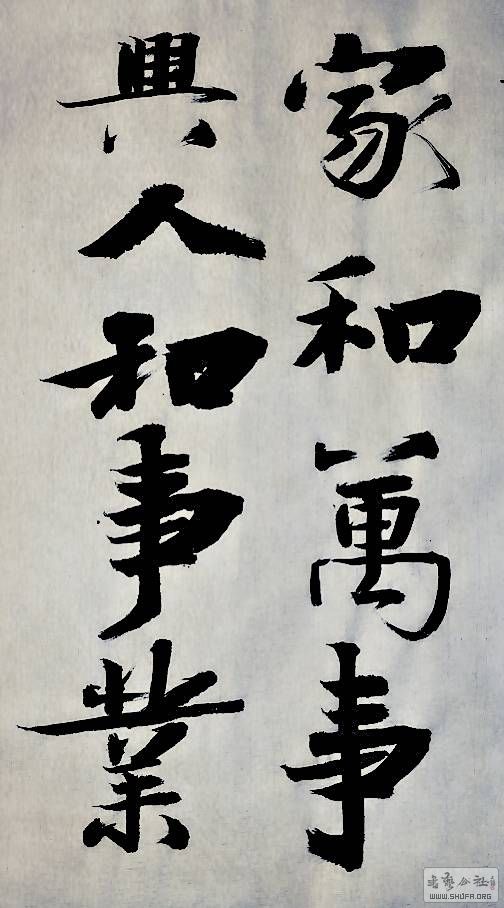 家和萬事
興人和事業
WWW.SHUFA.ORG